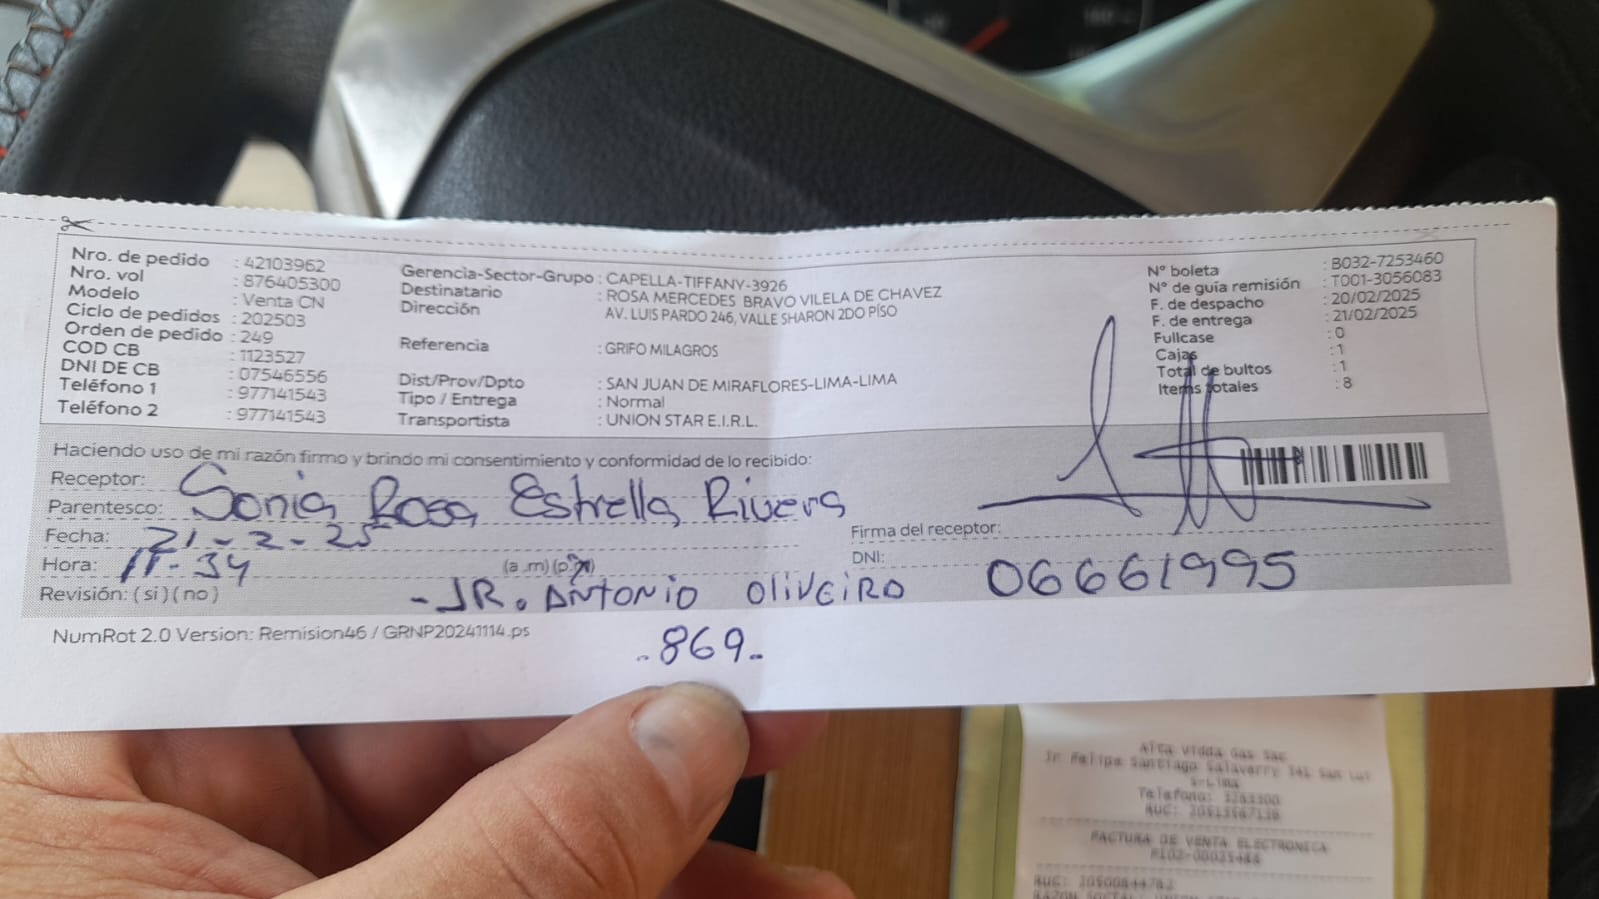 Nro. de pedido : 42103962
Nro. vol : 876405300
Modelo : Venta CN
Ciclo de pedidos : 202503
Orden de pedido : 249
COD CB : 1123527
DNI DE CB : 07546556
Teléfono 1 : 977141543
Teléfono 2 : 977141543
Gerencia-Sector-Grupo : CAPELLA-TIFFANY-3926
Destinatario : ROSA MERCEDES BRAVO VILELA DE CHAVEZ
Dirección AV. LUIS PARDO 246, VALLE SHARON 2DO PÍSO
Referencia : GRIFO MILAGROS
Dist/Prov/Dpto : SAN JUAN DE MIRAFLORES-LIMA-LIMA
Tipo / Entrega : Normal
Transportista : UNION STAR E.I.R.L.
N° boleta : B032-7253460
N° de guía remisión : T001-3056083
F. de despacho : 20/02/2025
F. de entrega : 21/02/2025
Fullcase : 0
Cajas : 1
Total de bultos : 1
Items totales : 8
Haciendo uso de mi razón firmo y brindo mi consentimiento y conformidad de lo recibido:
Receptor: Sonia Rosa Estrella Rivera
Parentesco:
Fecha: 21-2-25
Hora: 11-34 (a .m) (p.m)
Revisión: ( si ) ( no )
- JR. ANTONIO OLIVEIRO
-869-
Firma del receptor:
DNI: 06661995
NumRot 2.0 Version: Remision46 / GRNP20241114.ps
Alta Vidda Gas Sac
Jr Felipe Santiago Salaverry 341 San Lui
s-Lima
Telefono: 3263300
FACTURA DE VENTA ELECTRONICA